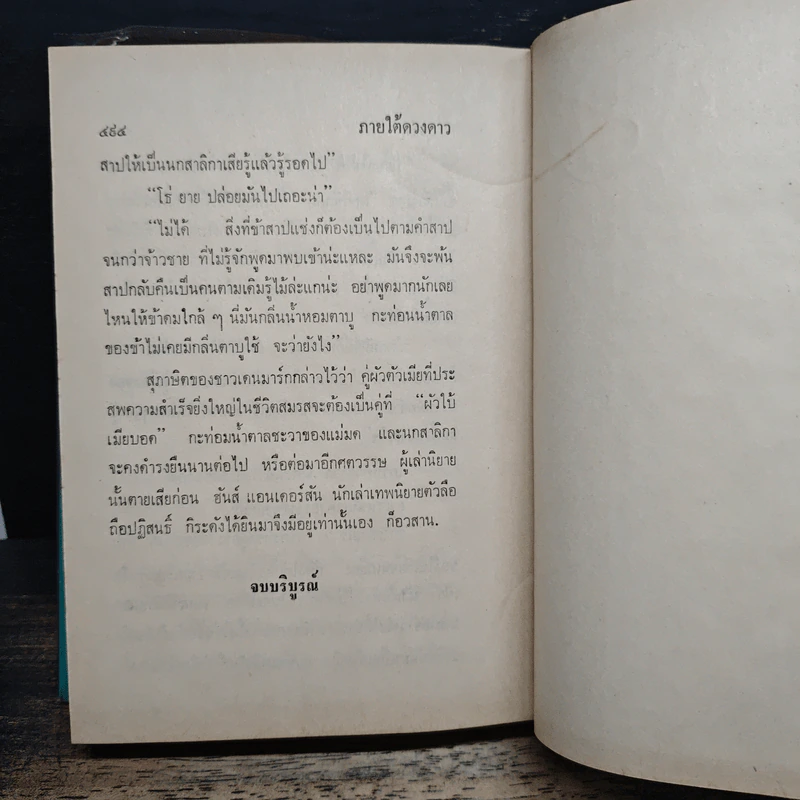 ๔๙๔ ภายใต้ดวงดาว
สาปให้เป็นนกสาลิกาเสียรู้แล้วรู้รอดไป”
“โธ่ ยาย ปล่อยมันไปเถอะน่า”
“ไม่ได้ สิ่งที่ข้าสาปแช่งก็ต้องเป็นไปตามคำสาป
จนกว่าจ้าวชาย ที่ไม่รู้จักพูดมาพบเข้าน่ะแหละ มันจึงจะพ้น
สาปกลับคืนเป็นคนตามเดิมรู้ไม้ล่ะแกน่ะ อย่าพูดมากนักเลย
ไหนให้ข้าดมใกล้ ๆ นี่มันกลิ่นน้ำหอมตาบู กะท่อนน้ำตาล
ของข้าไม่เคยมีกลิ่นตาบูใช้ จะว่ายังไง”
สุภาษิตของชาวเดนมาร์กกล่าวไว้ว่า คู่ผัวตัวเมียที่ประ
สพความสำเร็จยิ่งใหญ่ในชีวิตสมรสจะต้องเป็นคู่ที่ “ผัวใบ้
เมียบอด” กะท่อมน้ำตาลชะวาของแม่มด และนกสาลิกา
จะคงดำรงยืนนานต่อไป หรือต่อมาอีกศตวรรษ ผู้เล่านิยาย
นั้นตายเสียก่อน ฮันส์ แอนเดอร์สัน นักเล่าเทพนิยายตัวลือ
ถือปฏิสนธิ์ กิระดังได้ยินมาจึงมีอยู่เท่านั้นเอง ก็อวสาน.
จบบริบูรณ์